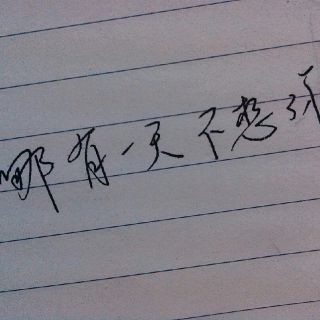 哪有一天不想你